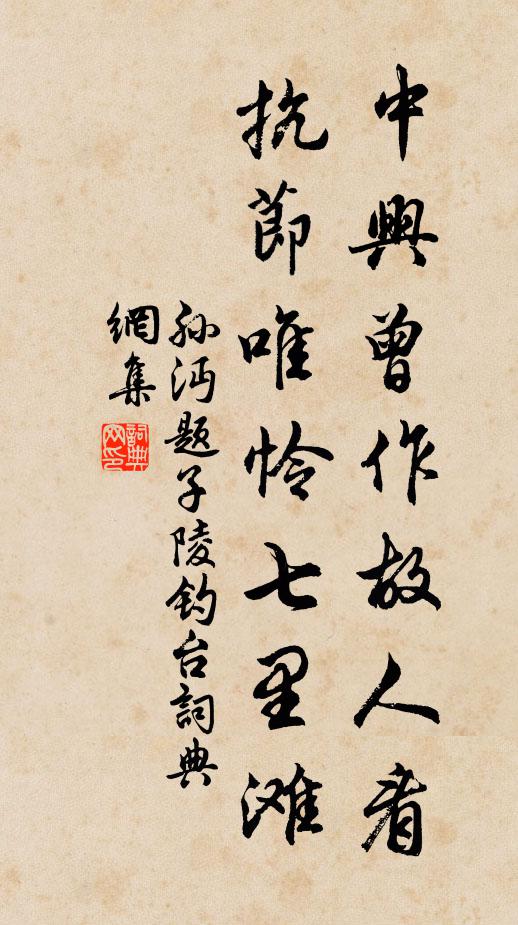 中興曾作故人看
抗節唯怜七里滩
孫沔題子陵钓台詞典
網集
詞典
网印